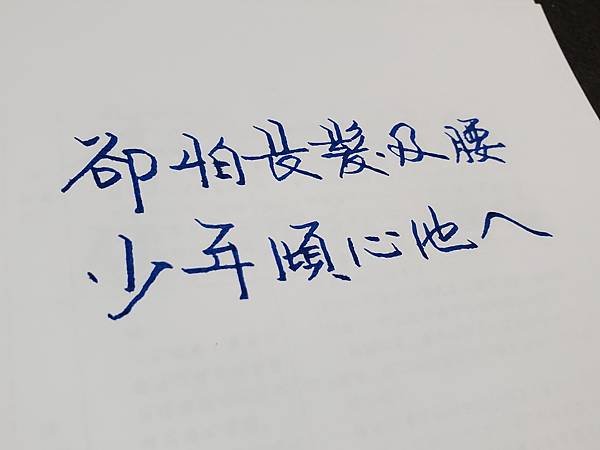 卻怕長髮及腰
少年傾心他人